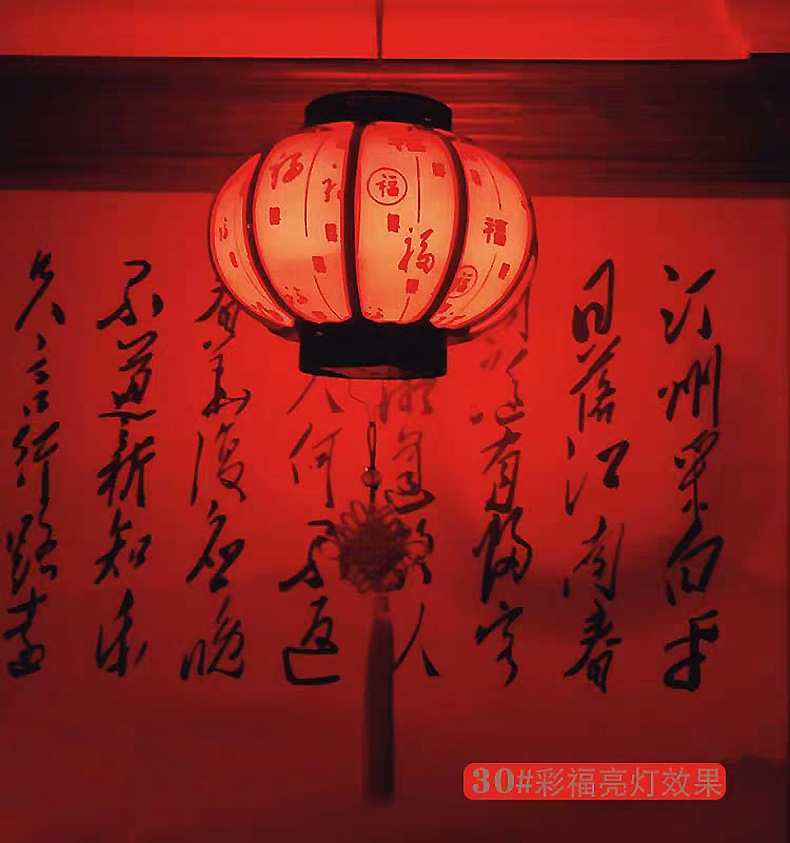 汀州采白平
日落江南春
洞庭有歸客
湘逢故人
人何不返
春華復應晚
不道新知乐
只言行路遠
福
福
福
福
30#彩福亮灯效果